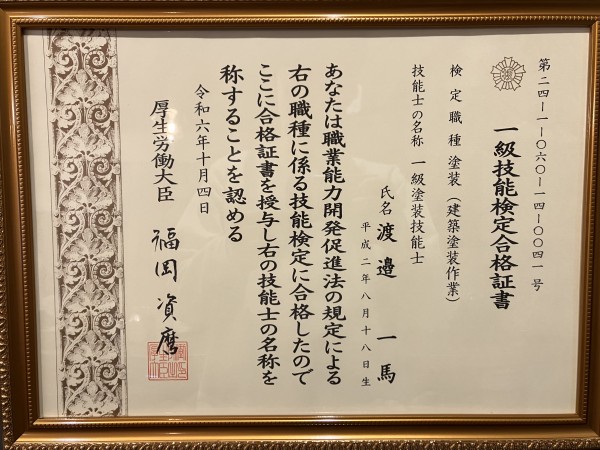 第二四ー一ー〇六〇ー一四ー〇〇四一号
一級技能検定合格証書
検定職種 塗装（建築塗装作業）
技能士の名称 一級塗装技能士
氏名 渡邉 一馬
平成二年八月十八日生
あなたは職業能力開発促進法の規定による
右の職種に係る技能検定に合格したので
ここに合格証書を授与し右の技能士の名称を
称することを認める
令和六年十月四日
厚生労働大臣 福岡資麿